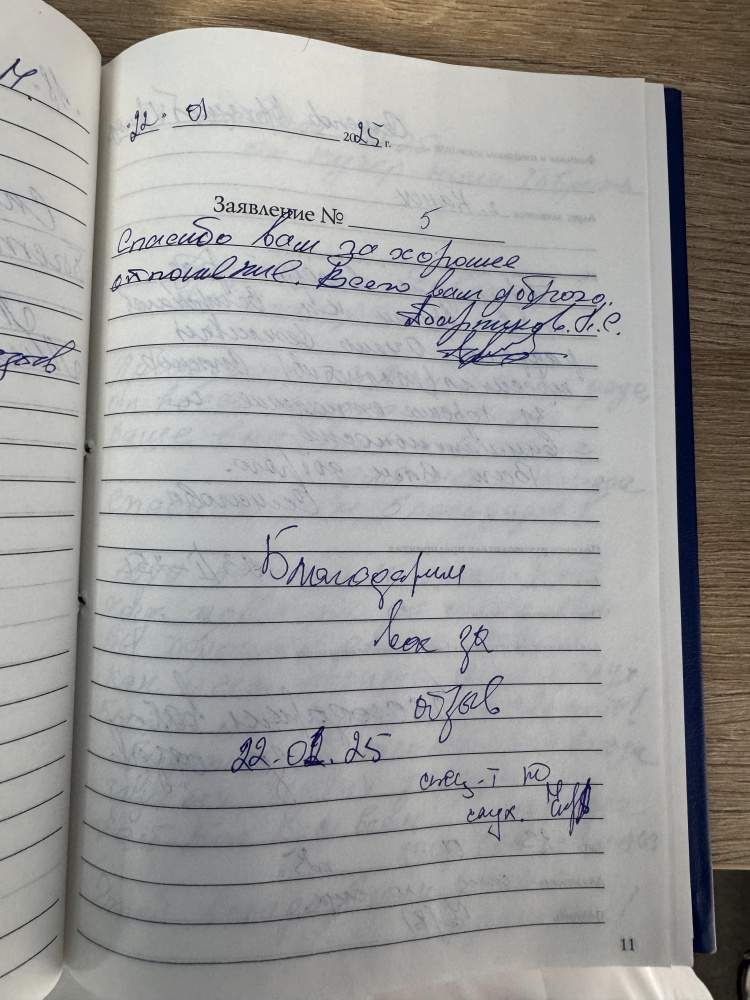 22. 01 2025 г.
Заявление № 5
Спасибо вам за хорошее
отношение. Всего вам доброго.
Благодарим
вас за
отзыв
22.01.25
спец-т Ю
11